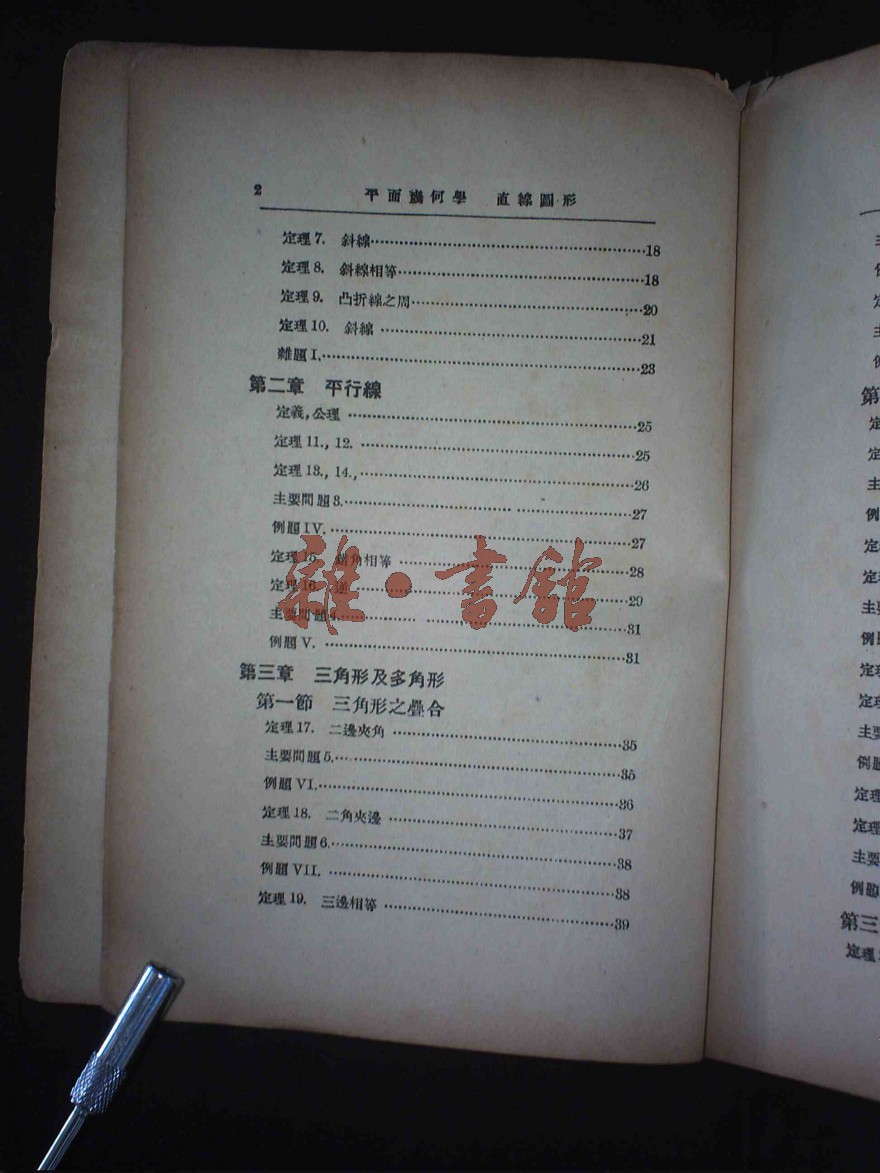 2
平面幾何學 直線圖形
定理7. 斜線……18
定理8. 斜線相等……18
定理9. 凸折線之周……20
定理10. 斜線……21
雜題I.……23
第二章 平行線
定義,公理……25
定理11., 12.……25
定理13., 14.,……26
主要問題3.……27
例題IV.……27
定理15. 錯角相等……28
定理16. 逆……29
主要問題4.……31
例題V.……31
第三章 三角形及多角形
第一節 三角形之疊合
定理17. 二邊夾角……35
主要問題5.……35
例題VI.……36
定理18. 二角夾邊……37
主要問題6.……38
例題VII.……38
定理19. 三邊相等……39
雜·書館